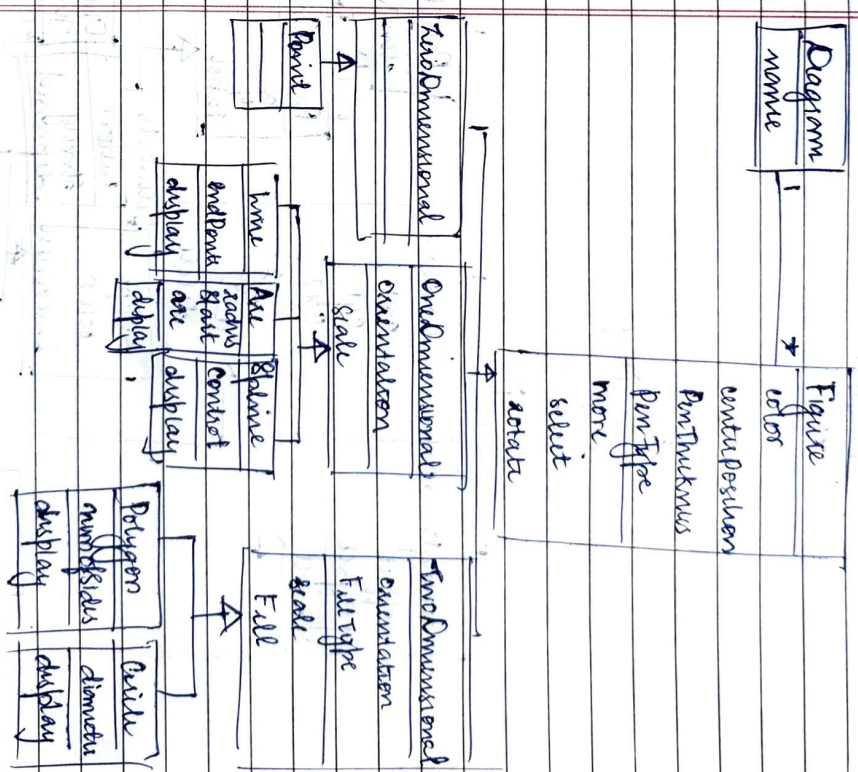 Diagram
name
Figure
color
centerPosition
PenThickness
PenType
move
select
rotate
ZeroDimensional
OneDimensional
orientation
scale
TwoDimensional
orientation
FillType
scale
Fill
Point
Line
endPoints
display
Arc
radius
start
arc
display
Spline
control
display
Polygon
numofsides
display
Circle
diameter
display